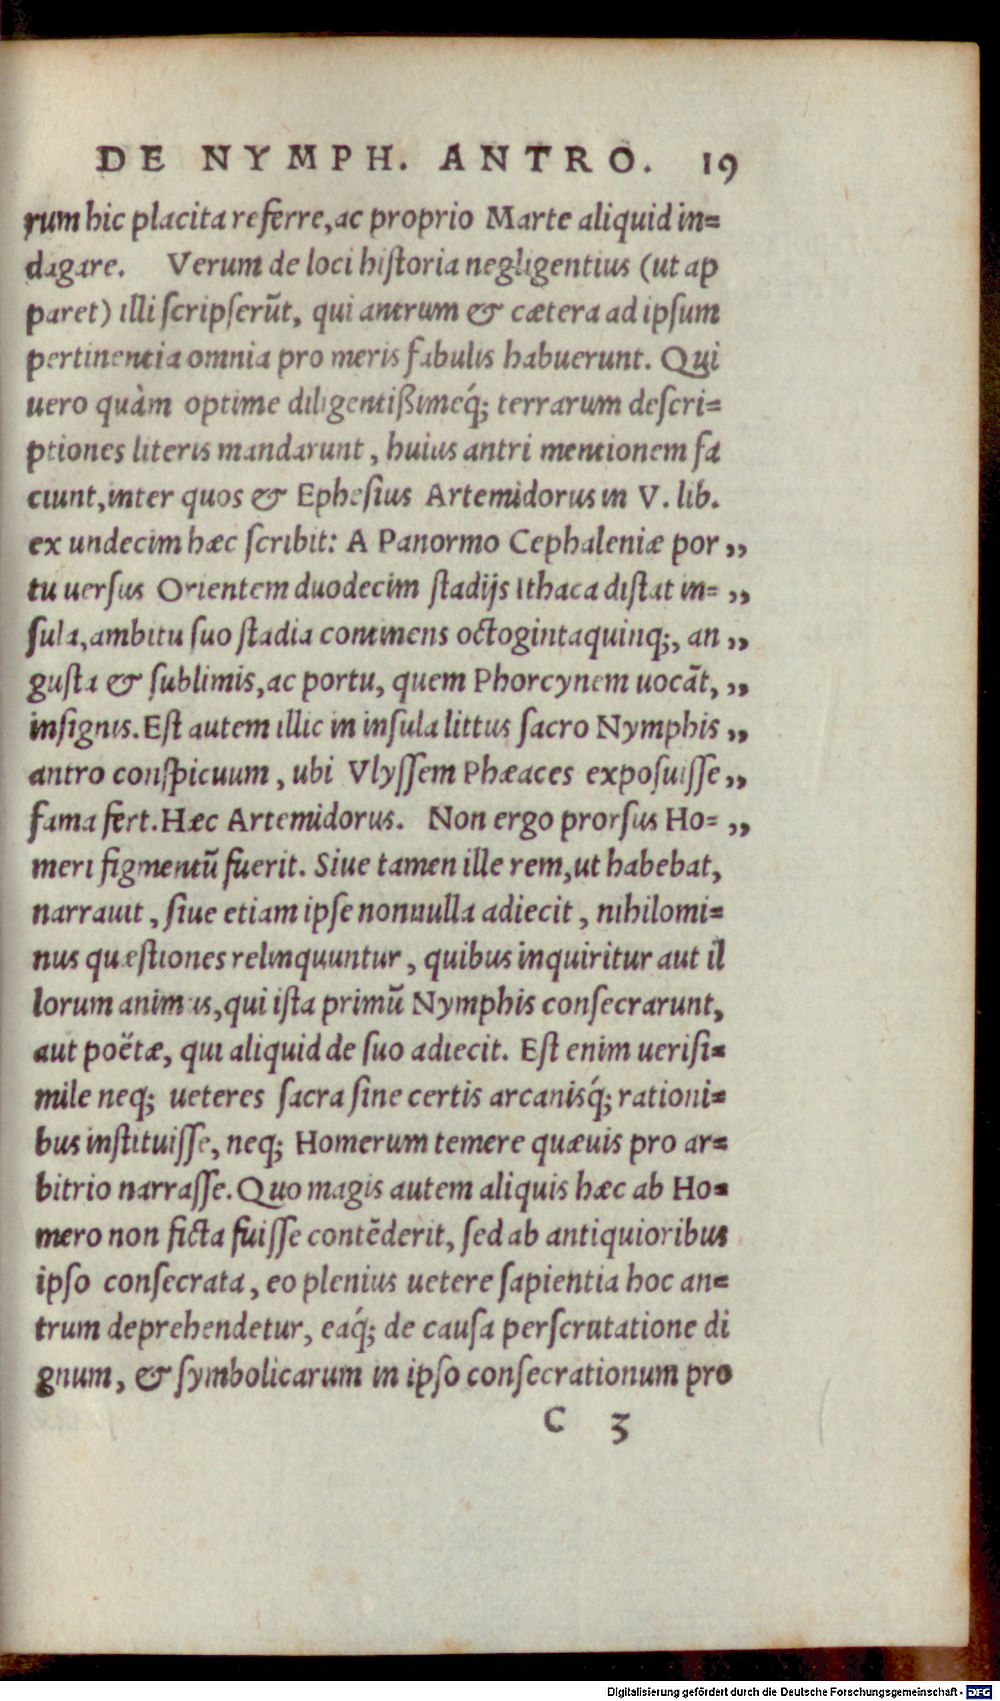 DE NYMPH. ANTRO. 19
rum hic placita referre, ac proprio Marte aliquid in=
dagare. Verum de loci historia negligentius (ut ap
paret) illi scripserũt, qui antrum & cætera ad ipsum
pertinentia omnia pro meris fabulis habuerunt. Qui
uero quàm optime diligentißimeq́; terrarum descri=
ptiones literis mandarunt, huius antri mentionem fa
ciunt, inter quos & Ephesius Artemidorus in V. lib.
ex undecim hæc scribit: A Panormo Cephaleniæ por ,,
tu uersus Orientem duodecim stadijs Ithaca distat in= ,,
sula, ambitu suo stadia continens octogintaquinq;, an ,,
gusta & sublimis, ac portu, quem Phorcynem uocãt, ,,
insignis. Est autem illic in insula littus sacro Nymphis ,,
antro conspicuum, ubi Vlyssem Phæaces exposuisse ,,
fama fert. Hæc Artemidorus. Non ergo prorsus Ho= ,,
meri figmentũ fuerit. Siue tamen ille rem, ut habebat,
narrauit, siue etiam ipse nonnulla adiecit, nihilomi=
nus quæstiones relinquuntur, quibus inquiritur aut il
lorum animus, qui ista primũ Nymphis consecrarunt,
aut poëtæ, qui aliquid de suo adiecit. Est enim uerisi=
mile neq; ueteres sacra sine certis arcanisq́; rationi=
bus instituisse, neq; Homerum temere quæuis pro ar=
bitrio narrasse. Quo magis autem aliquis hæc ab Ho=
mero non ficta fuisse contẽderit, sed ab antiquioribus
ipso consecrata, eo plenius uetere sapientia hoc an=
trum deprehendetur, eaq́; de causa perscrutatione di
gnum, & symbolicarum in ipso consecrationum pro
C 3
Digitalisierung gefördert durch die Deutsche Forschungsgemeinschaft - DFG